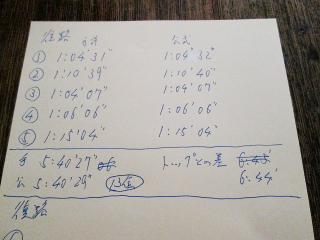 復路 手元 公式
① 1:04'31" 1:04'32"
② 1:10'39" 1:10'40"
③ 1:04'07" 1:04'07"
④ 1:06'06" 1:06'06"
⑤ 1:15'04" 1:15'04"
手 5:40'27" トップとの差
公 5:40'29" 13位 6:44'
復路